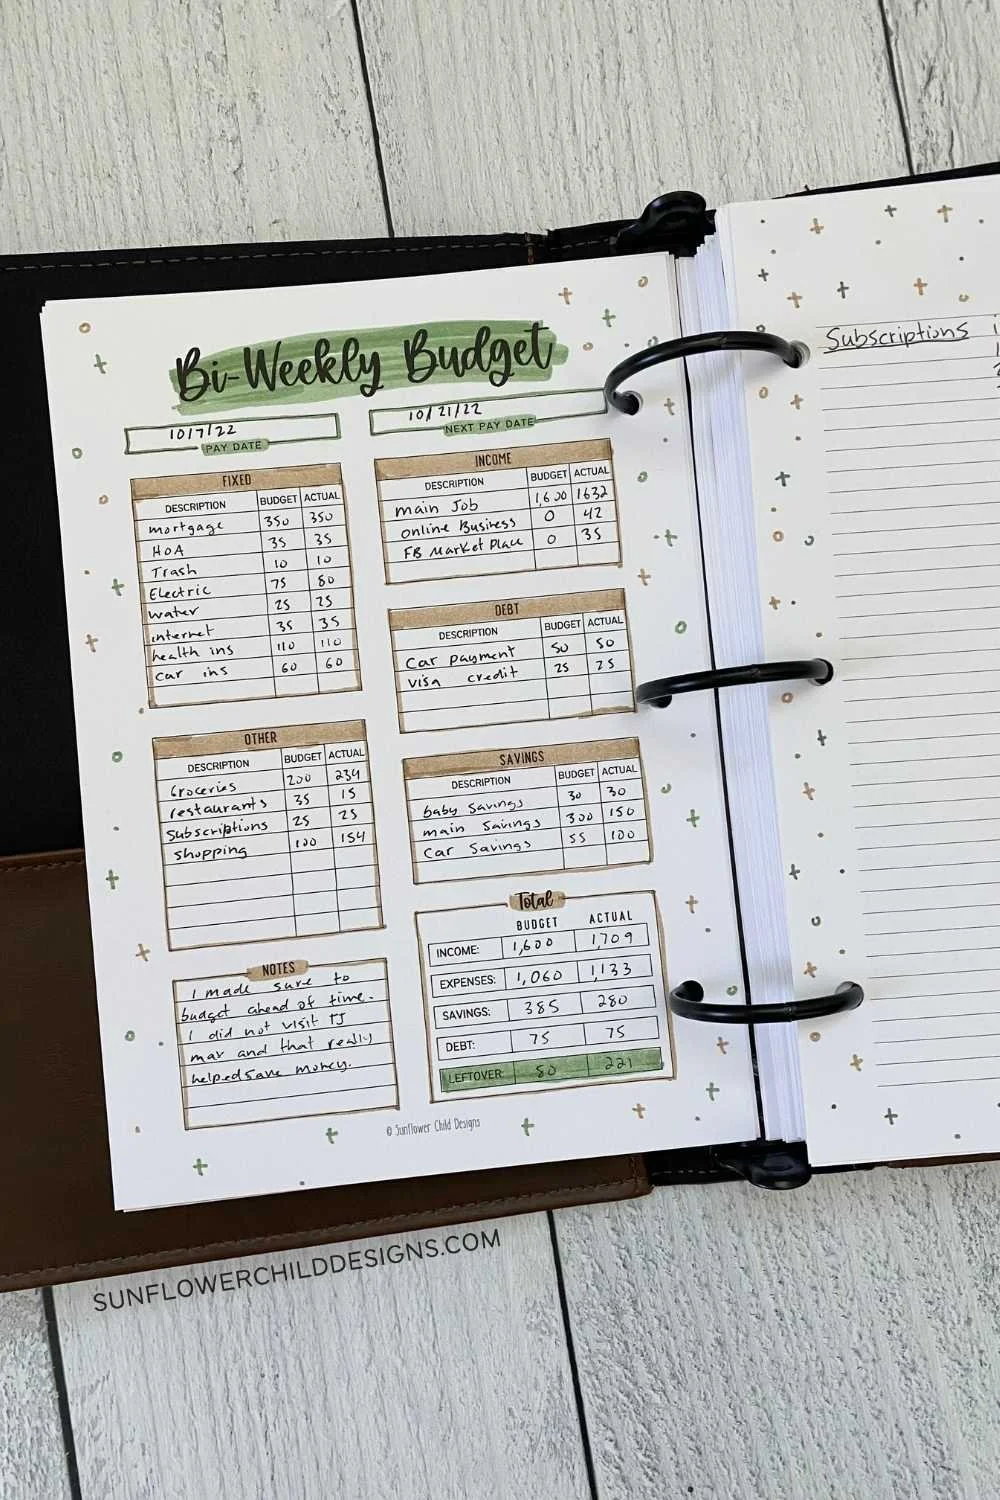 Bi-Weekly Budget
10/7/22
PAY DATE
10/21/22
NEXT PAY DATE
FIXED
DESCRIPTION BUDGET ACTUAL
mortgage 350 350
HOA 35 35
Trash 10 10
Electric 75 80
water 25 25
internet 35 35
health ins 110 110
car ins 60 60
INCOME
DESCRIPTION BUDGET ACTUAL
main Job 1,600 1632
online Business 0 42
FB Market Place 0 35
DEBT
DESCRIPTION BUDGET ACTUAL
Car payment 50 50
visa credit 25 25
OTHER
DESCRIPTION BUDGET ACTUAL
Groceries 200 234
restaurants 35 15
Subscriptions 25 25
shopping 100 154
SAVINGS
DESCRIPTION BUDGET ACTUAL
baby savings 30 30
main savings 300 150
Car Savings 55 100
NOTES
I made sure to
budget ahead of time.
I did not visit TJ
max and that really
helped save money.
Total
BUDGET ACTUAL
INCOME: 1,600 1,709
EXPENSES: 1,060 1,133
SAVINGS: 385 280
DEBT: 75 75
LEFTOVER: 80 221
© Sunflower Child Designs
Subscriptions
SUNFLOWERCHILDDESIGNS.COM